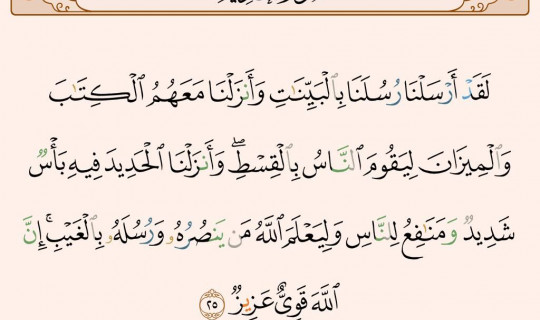 لَقَدْ أَرْسَلْنَا رُسُلَنَا بِٱلْبَيِّنَٰتِ وَأَنزَلْنَا مَعَهُمُ ٱلْكِتَٰبَ
وَٱلْمِيزَانَ لِيَقُومَ ٱلنَّاسُ بِٱلْقِسْطِۖ وَأَنزَلْنَا ٱلْحَدِيدَ فِيهِ بَأْسٌ
شَدِيدٌ وَمَنَٰفِعُ لِلنَّاسِ وَلِيَعْلَمَ ٱللَّهُ مَن يَنصُرُهُۥ وَرُسُلَهُۥ بِٱلْغَيْبِۚ إِنَّ
ٱللَّهَ قَوِيٌّ عَزِيزٌ ٢٥